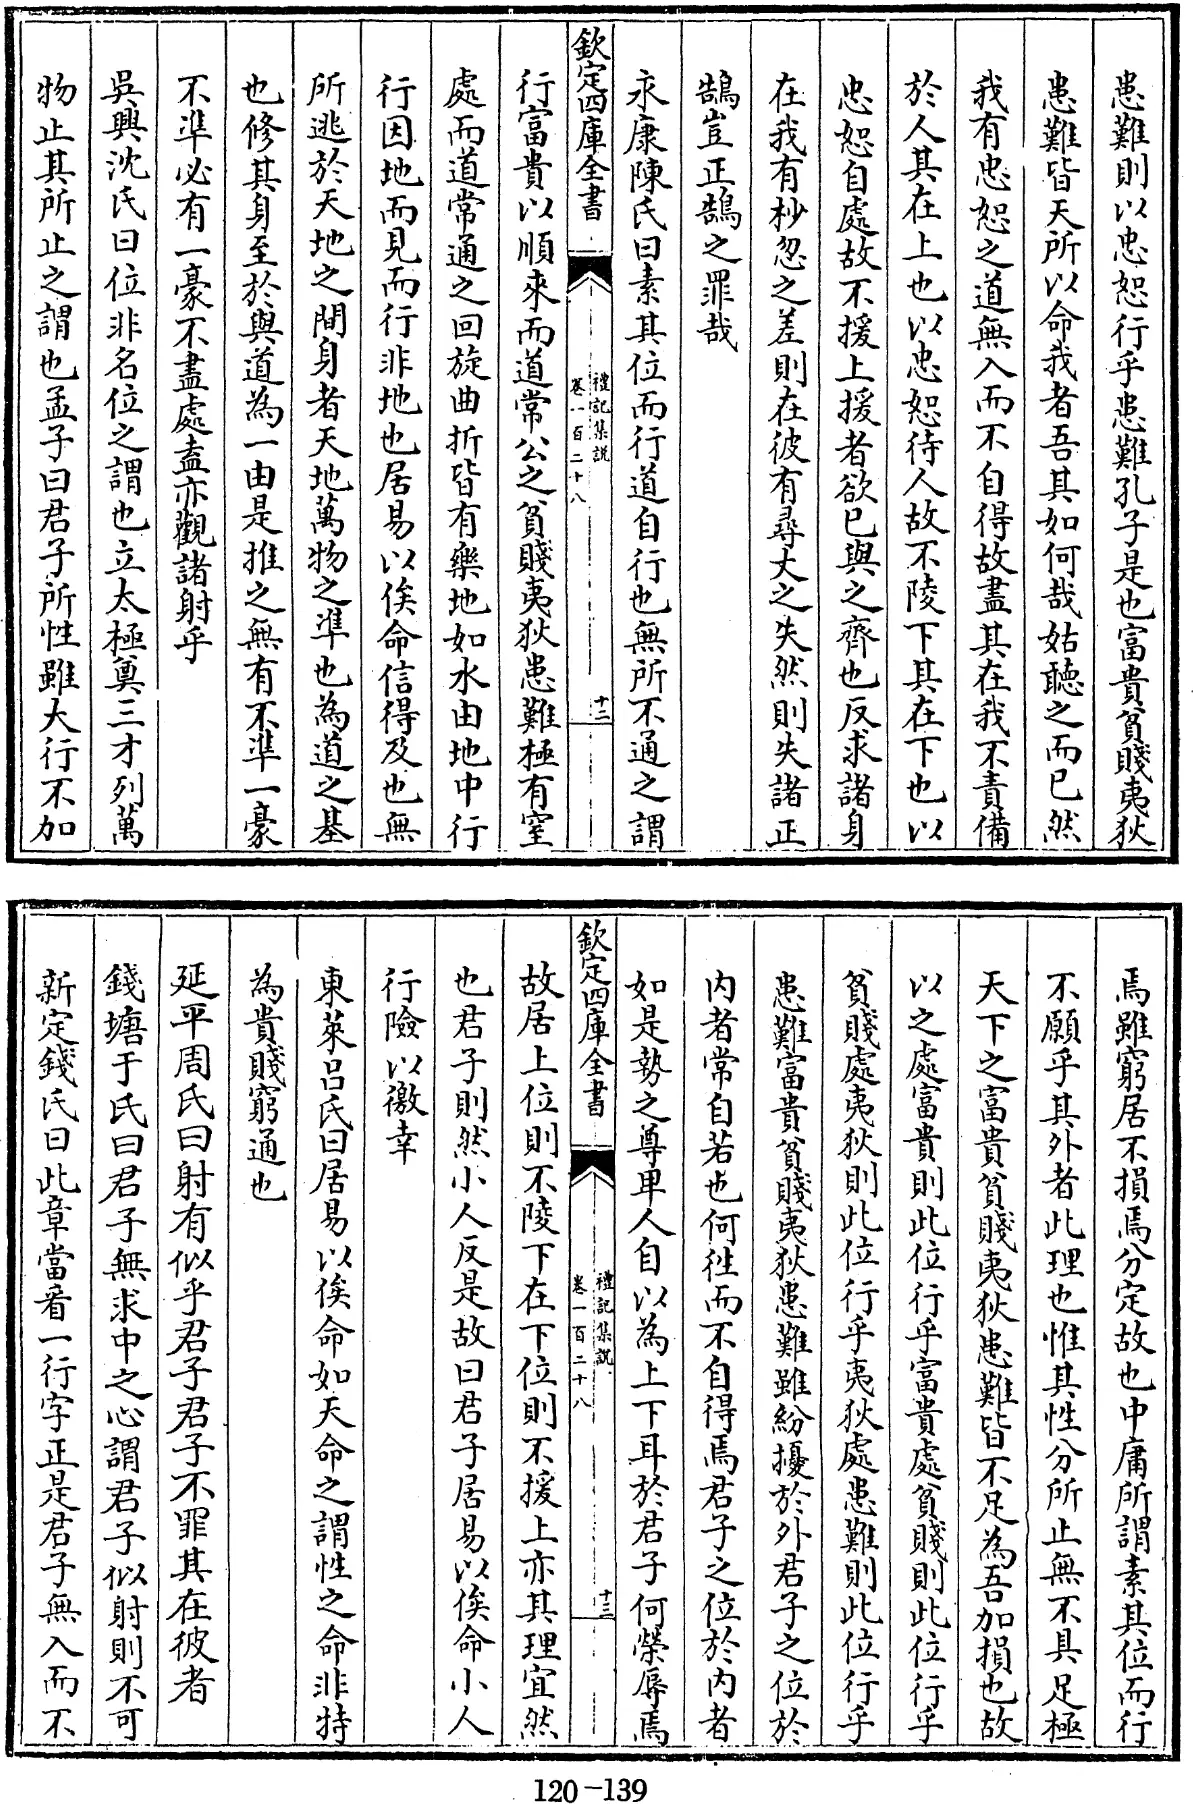 患難則以忠恕行乎患難孔子是也富貴貧賤夷狄
患難皆天所以命我者吾其如何哉姑聽之而已然
我有忠恕之道無入而不自得故盡其在我不責備
於人其在上也以忠恕待人故不陵下其在下也以
忠恕自處故不援上援者欲已與之齊也反求諸身
在我有杪忽之差則在彼有尋丈之失然則失諸正
鵠豈正鵠之罪哉
永康陳氏曰素其位而行道自行也無所不通之謂
欽定四庫全書
禮記集說
卷一百二十八
十二
行富貴以順來而道常公之貧賤夷狄患難極有窒
處而道常通之回旋曲折皆有樂地如水由地中行
行因地而見而行非地也居易以俟命信得及也無
所逃於天地之間身者天地萬物之準也為道之基
也修其身至於與道為一由是推之無有不準一豪
不準必有一豪不盡處盍亦觀諸射乎
吳興沈氏曰位非名位之謂也立太極奠三才列萬
物止其所止之謂也孟子曰君子所性雖大行不加
焉雖窮居不損焉分定故也中庸所謂素其位而行
不願乎其外者此理也惟其性分所止無不具足極
天下之富貴貧賤夷狄患難皆不足為吾加損也故
以之處富貴則此位行乎富貴處貧賤則此位行乎
貧賤處夷狄則此位行乎夷狄處患難則此位行乎
患難富貴貧賤夷狄患難雖紛擾於外君子之位於
內者常自若也何徃而不自得焉君子之位於內者
如是勢之尊卑人自以為上下耳於君子何榮辱焉
欽定四庫全書
禮記集說
卷一百二十八
十三
故居上位則不陵下在下位則不援上亦其理宜然
也君子則然小人反是故曰君子居易以俟命小人
行險以徼幸
東萊呂氏曰居易以俟命如天命之謂性之命非特
為貴賤窮通也
延平周氏曰射有似乎君子君子不罪其在彼者
錢塘于氏曰君子無求中之心謂君子似射則不可
新定錢氏曰此章當看一行字正是君子無入而不
120-139